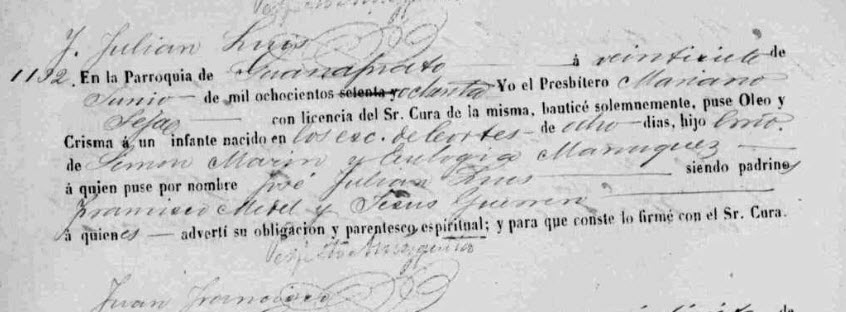 J. Julian Luis
1192. En la Parroquia de Guanajuato á veintisiete de
Junio de mil ochocientos setenta y ochenta Yo el Presbítero Mariano
con licencia del Sr. Cura de la misma, bauticé solemnemente, puse Oleo y
Crisma á un infante nacido en de Cortes de ocho dias, hijo
de Simon Marin y Eulogia Marraquez
á quien puse por nombre José Julian Luis siendo padrinos
Francisco y Jesus Guerrero
á quienes advertí su obligacion y parentesco espiritual; y para que conste lo firmé con el Sr. Cura.
Juan Francisco
de